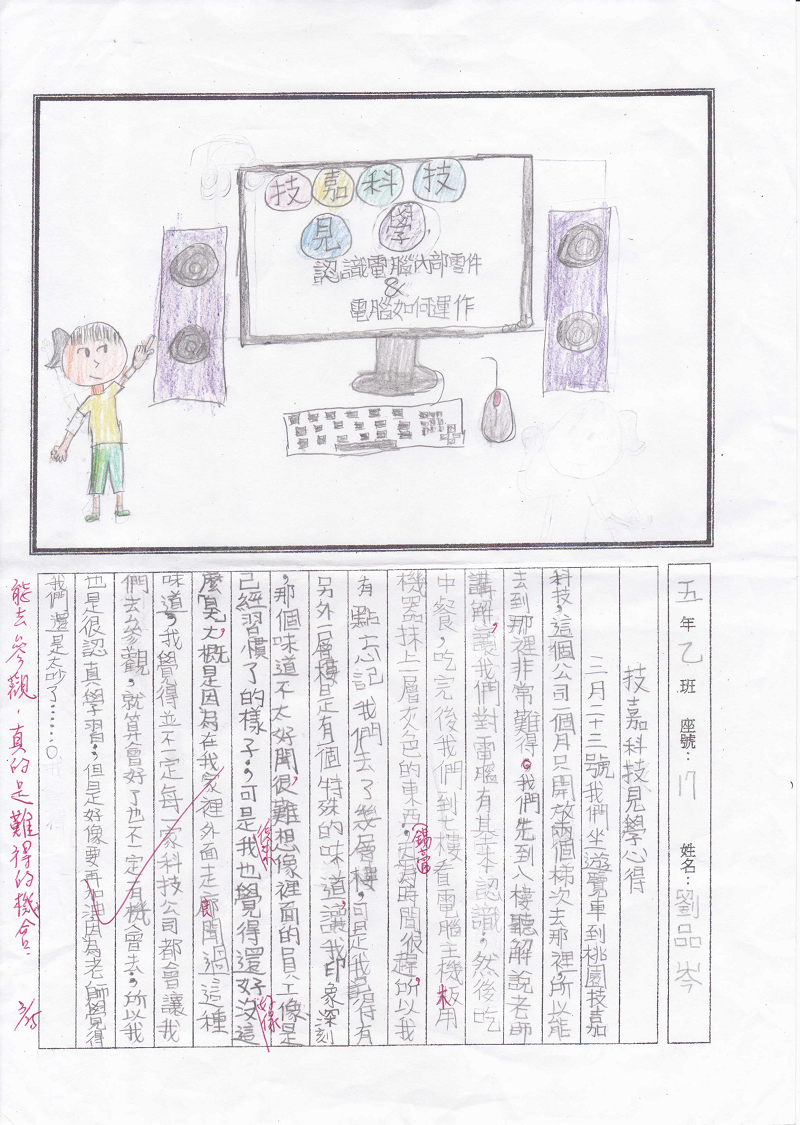 技嘉科技
見學
認識電腦內部零件
&
電腦如何運作
五年乙班 座號：17 姓名：劉品岑
技嘉科技見學心得
三月二十三號我們坐遊覽車到桃園技嘉
科技，這個公司一個月只開放兩個梯次去那裡，所以能
去到那裡非常難得。我們先到八樓聽解說老師
講解，讓我們對電腦有基本認識，然後吃
中餐，吃完後我們到七樓看電腦主機板用
機器抹上一層灰色的東西，因為時間很趕，所以我
有點忘記我們去了幾層樓，可是我記得有
另外一層樓是有個特殊的味道，讓我印象深刻
，那個味道不太好聞，很難想像裡面的員工像是
已經習慣了的樣子，可是我也覺得還好沒這
麼臭，大概是因為在我家裡外面走廊聞過這種
味道，我覺得並不一定每一家科技公司都會讓我
們去參觀，就算會好了也不一定有機會去，所以我
也是很認真學習，但是好像要再加油因為老師覺得
我們還是太吵了……。
錫膏
後來
好像
能去參觀，真的是難得的機會！